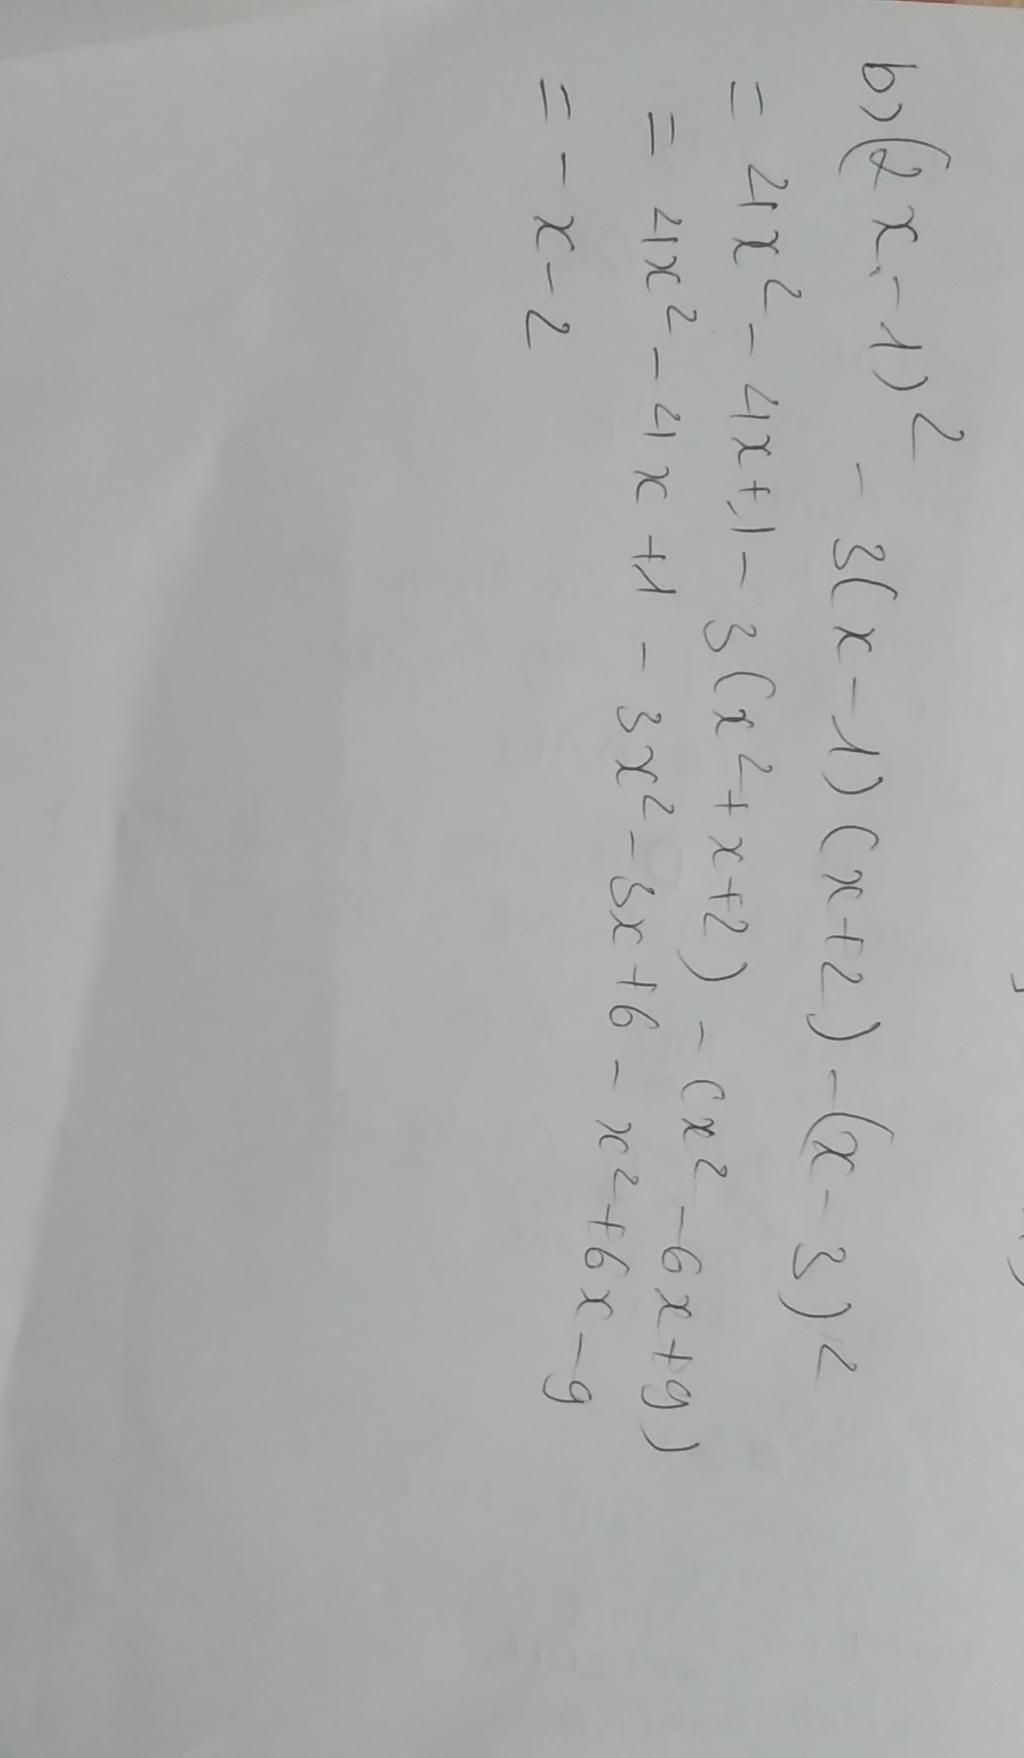 b) (2x-1)² - 3(x-1)(x+2) - (x-3)²
= 4x² - 4x+1 - 3(x²+x+2) - (x² -6x+9)
= 4x² - 4x +1 - 3x² - 3x +6 - x² +6x -9
= - x - 2